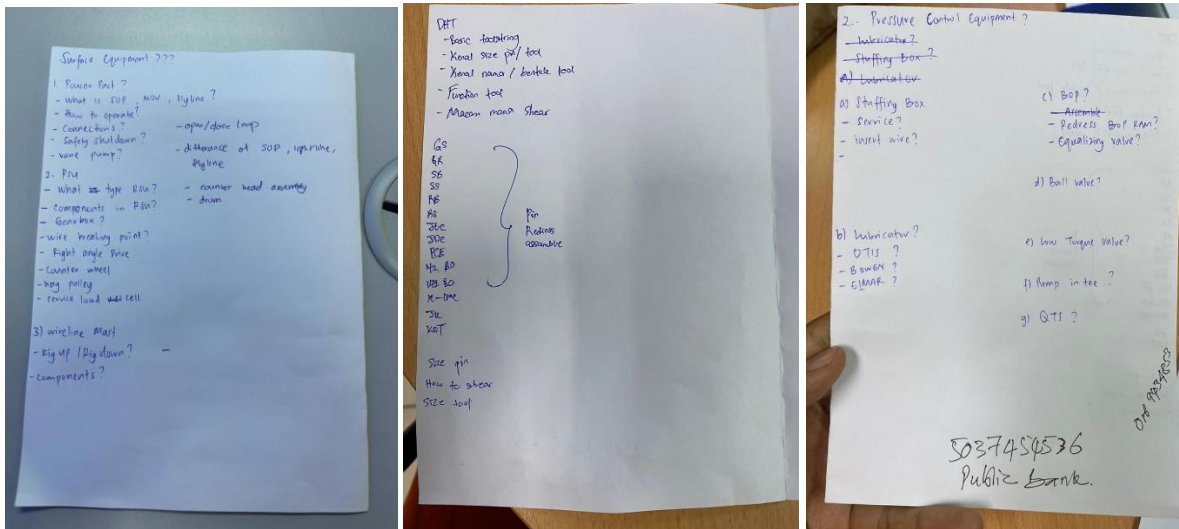 Surface Equipment ???
1. Power Pack ?
- What is SOP, MOV, flyline ?
- How to operate?
- Connections ?
- Safety shutdown ?
- vane pump?
- open/close loop
- differance of SOP, lightline, flyline
2. RSU
- What type RSU?
- components in RSU?
- Gearbox ?
- wire breaking point?
- Right angle Drive
- Counter wheel
- hay pulley
- service load cell
- counter head assembly
- drum
3) wireline Mast
- Rig up / Rig down?
-
- components ?
DHT
- Basic toolstring
- Kenal size pin / tool
- Kenal nama / bentuk tool
- Function tool
- Macam mana shear
GS
GR
SB
SS
RB
RS
JUC
JDC
PCE
1/2 BO
BO
X-line
JK
KOT
Pin
Redress
assemble
Size pin
How to shear
Size tool
2. Pressure Control Equipment ?
- Lubricator ?
- Stuffing Box ?
A) Lubricator
a) Stuffing Box
- Service?
- insert wire?
-
b) Lubricator ?
- OTIS ?
- BOWEN ?
- ELMAR ?
c) BOP ?
- Assemble
- Redress BOP RAM?
- Equalizing valve?
d) Ball valve?
e) Low Torque Valve?
f) Pump in tee ?
g) QTS ?
5037454536
Public bank.